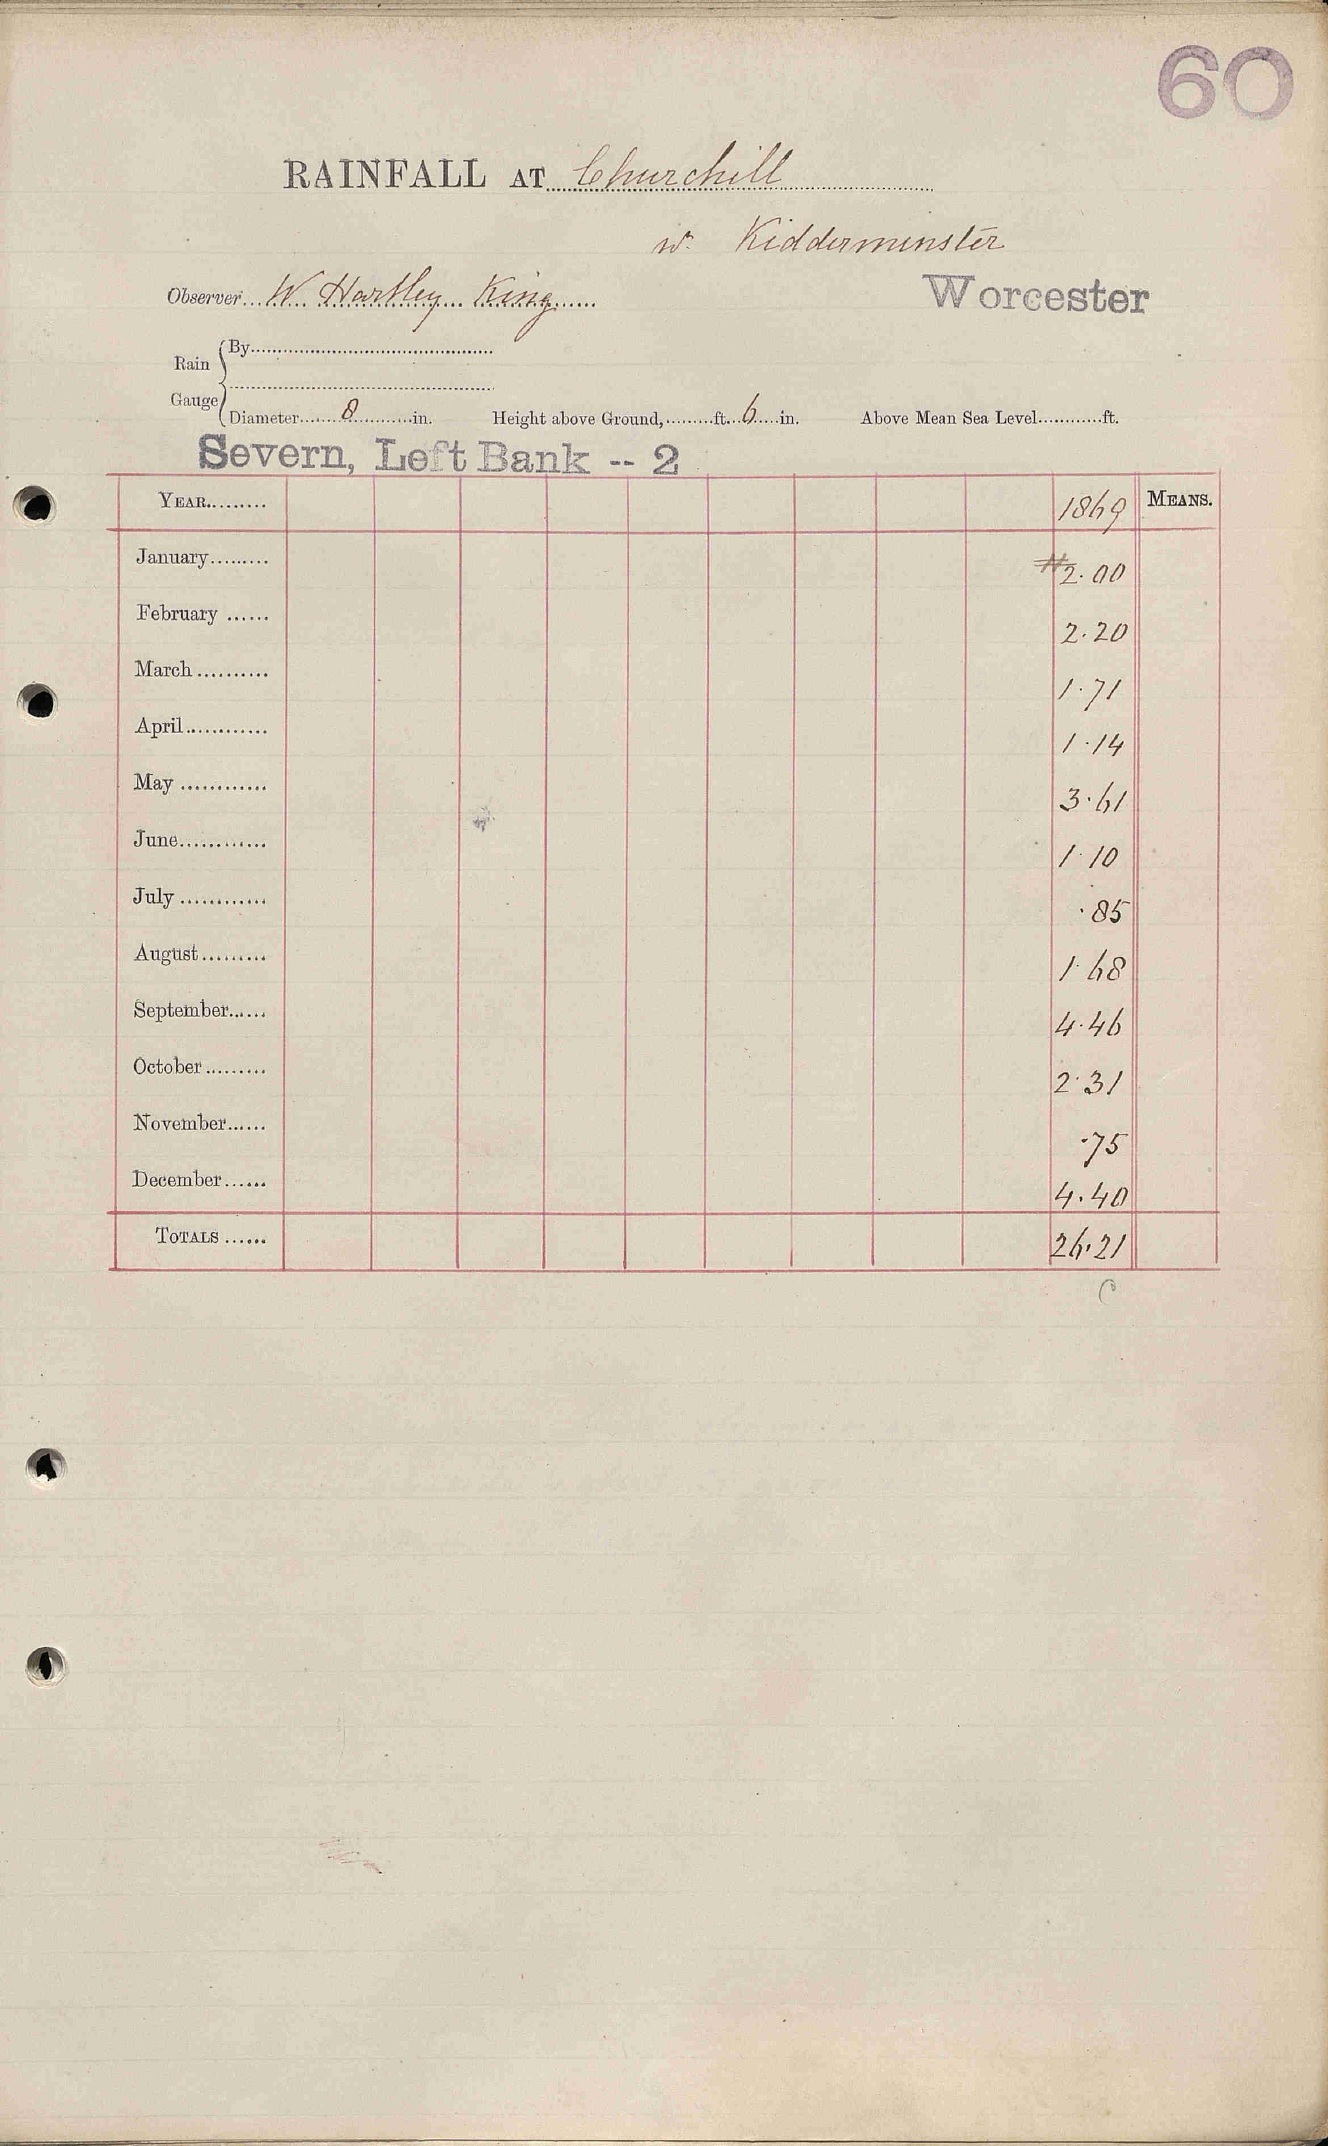 60
RAINFALL AT Churchill
nr. Kidderminster
Worcester
Observer W Hartley King
Rain Gauge By
Diameter 8 in. Height above Ground, ft. 6 in. Above Mean Sea Level ft.
Severn, Left Bank -- 2
YEAR 1869 MEANS.
January #2.00
February 2.20
March 1.71
April 1.14
May 3.61
June 1.10
July .85
August 1.68
September 4.46
October 2.31
November .75
December 4.40
TOTALS 26.21